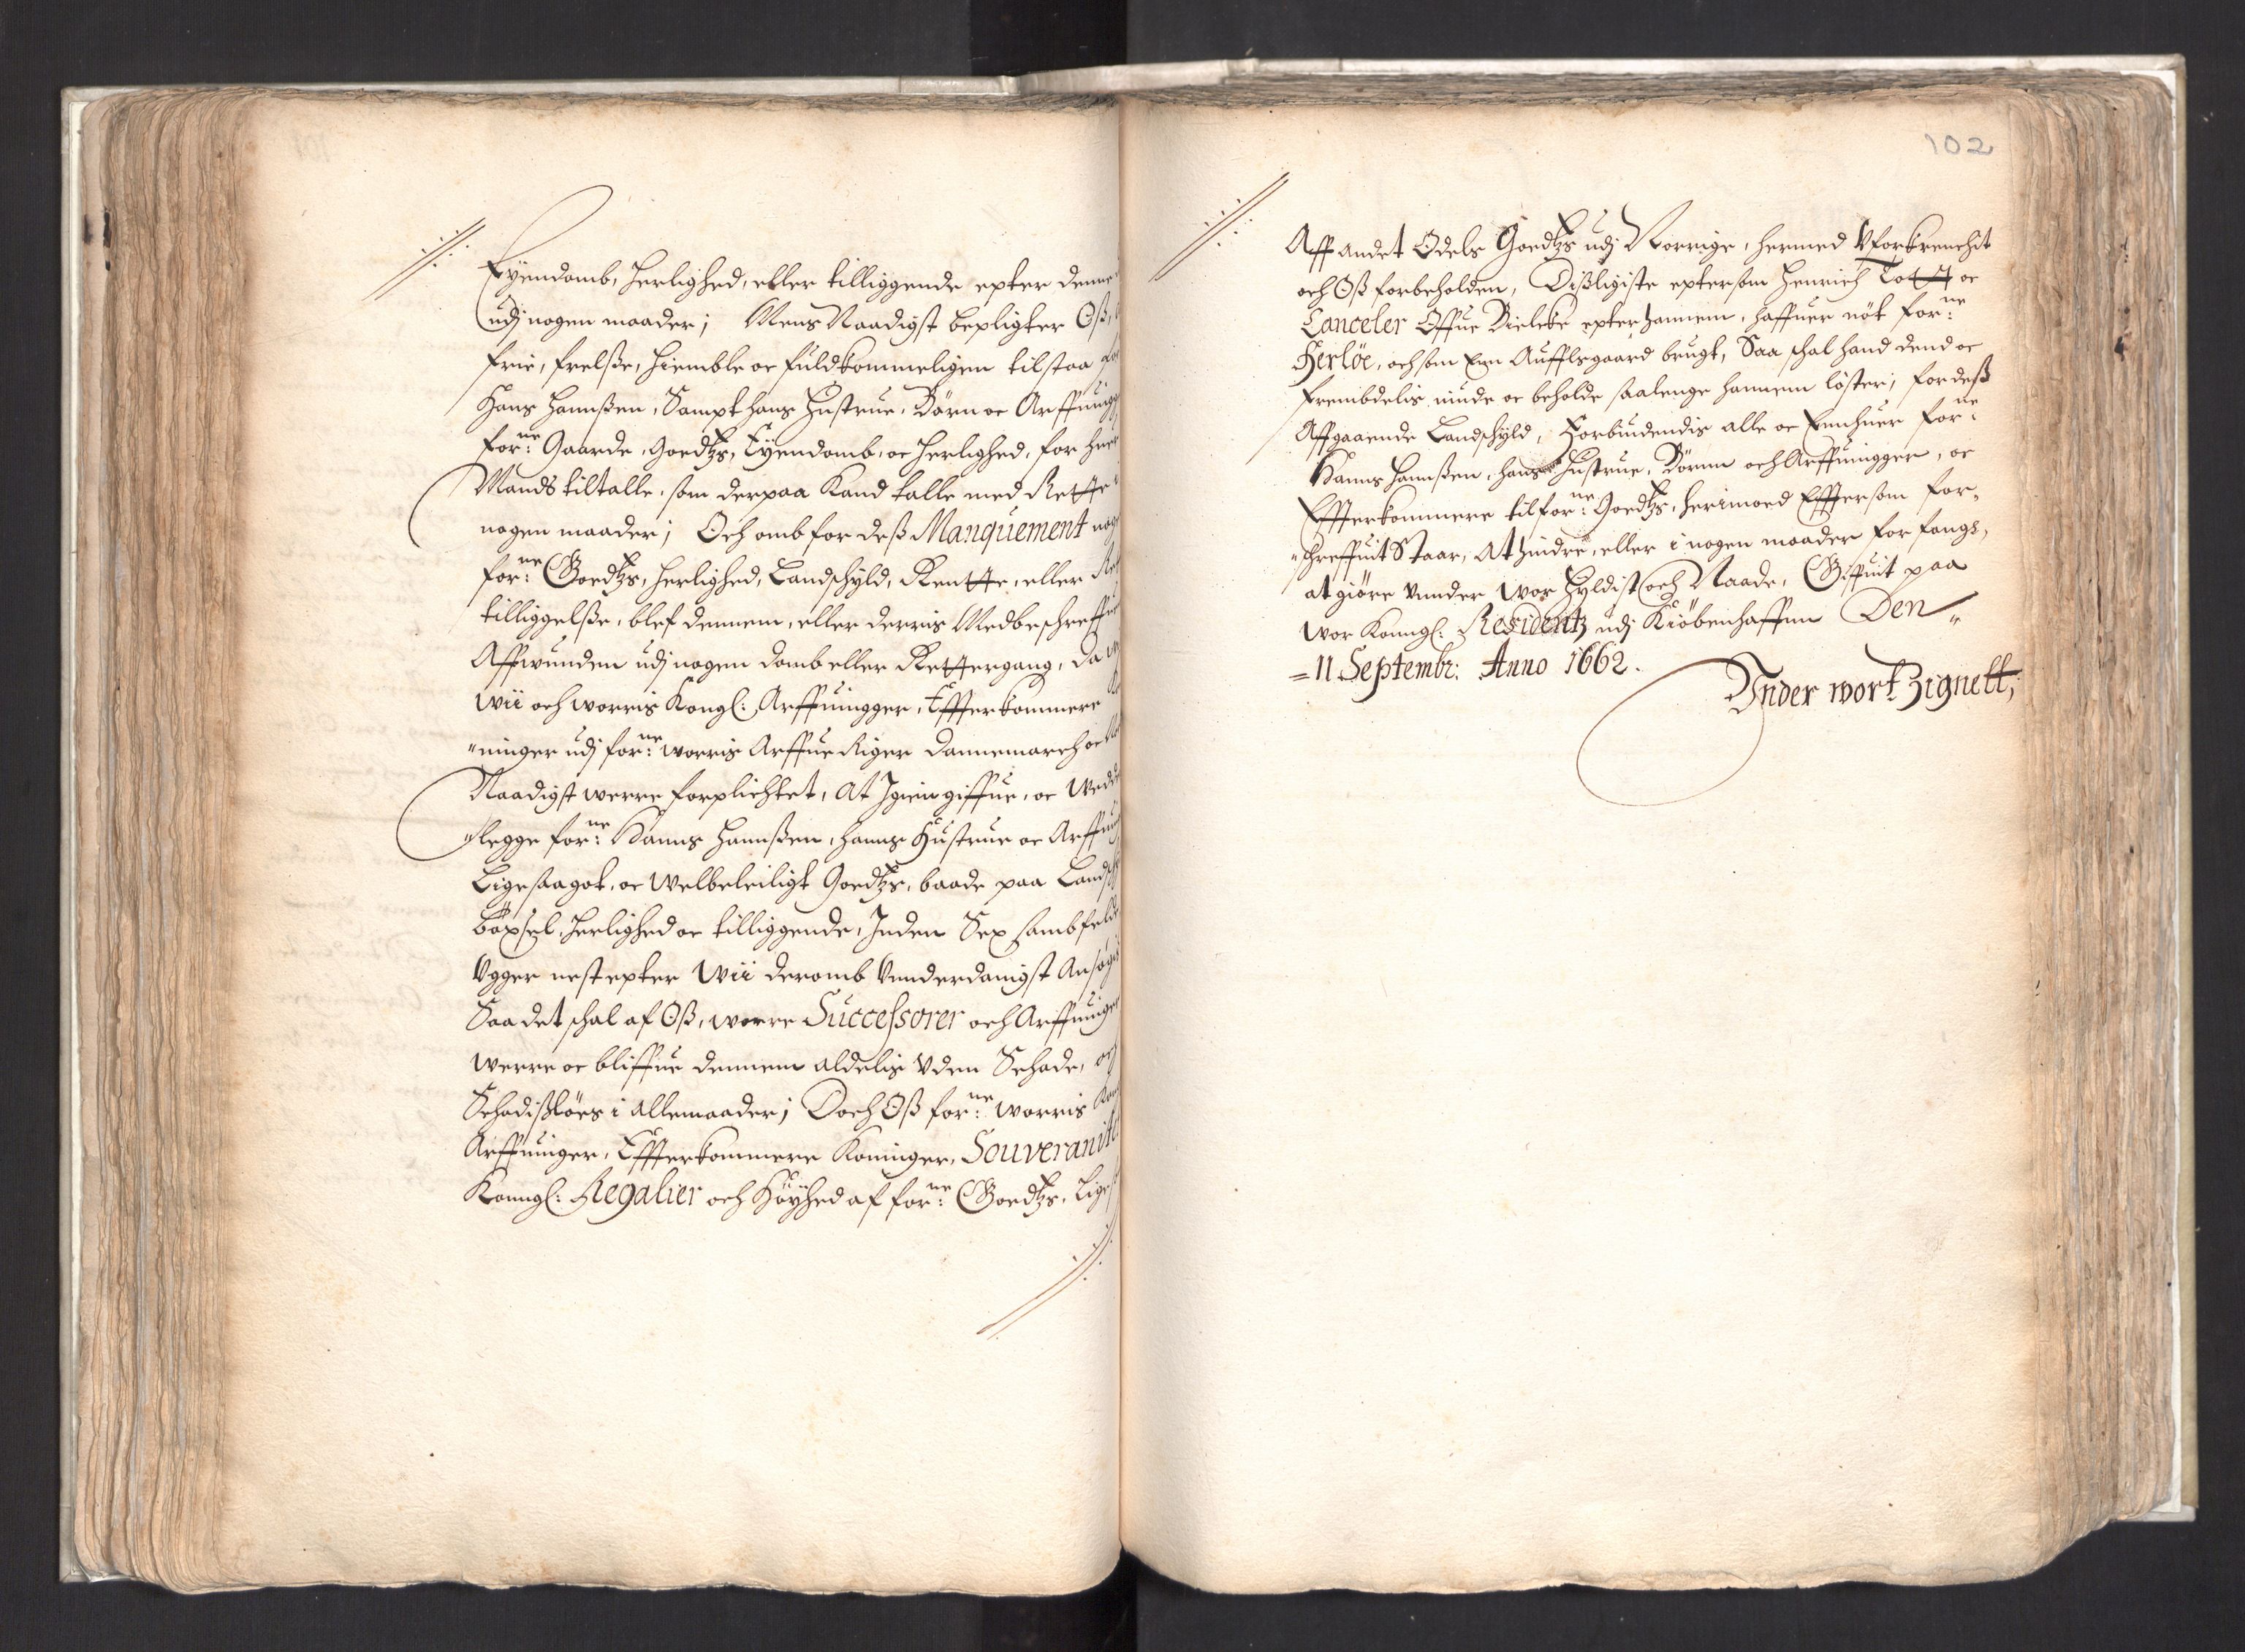 Eyendomb, Herlighed, eller tilliggende epter denne
udj nogen maader; Mens Naadigst bepligter Oß,
frie, frelße, hiemble oc fuldkommeligen tilstaa
Hans Hannßen, Sampt hans Hustrue, Börn oc Arffuing
forne: Gaarde, Goedtzs, Eyendomb, oc Herlighed, for huer
Mands tiltalle, som derpaa Kand talle med Rette i
nogen maader; Och omb for deß Manquement nog
forne: Goedtzs, Herlighed, Landschyld, Rentte, eller
tilliggelße, blef dennem, eller derris Medbeschreffu
Affwunden udj nogen domb eller Rettergang, da
wii och worris Kongl: Arffuingger, Effterkommere
"ninger udj forne: worris Arffue Riger Dannemarch oc
Naadigst werre forplichtet, at Igiengiffue, oc Wedd
"legge forne: Hanns Hannßen, hanns Hustrue oc Arffui
Ligesaagot, oc Welbeleiligt Goedtzs, baade paa Landsch
böxsel, Herlighed oc tilliggende, Inden Sex sambfeld
Vgger nest epter Wii deromb Vnnderdanigst Ansög
Saa det schal af Oß, worre Successorer och Arffuinger
werre oc bliffue dennem aldelis Vden Schade, och
Schadißlöes i allemaader; Doch Oß forne: worris Kon
Arffuinger, Effterkommere Koninger, Souveranitet
Konngl: Regalier och Höyhed af forne: Goedtzs, Liges
102
Aff andet Odels Goedtzs udj Norrige, hermed Vforkrenchit
och Oß forbeholden, Dißligiste eptersom Henrich Tott oc
Canceler Offue Bielcke epter hannem, haffuer nöt forne:
Herlöe, och som Enn Aufflsgaard brugt, Saa schal hand dend oc
frembdelis niude oc beholde saalenge hannem löster; for deß
Affgaaende Landschyld, Forbiudendis alle oc Ennhuer forne:
Hanns Hannßen, hans Hustrue, Börnn och Arffuingger, oc
Effterkommere til forne: Goedtzs, herimoed Efftersom for,
"schreffuit Staar, At hindre, eller i nogen maader for fangs,
at giöre vunder wor Hyldist och Naade, Giffuit paa
wor Konngl: Residentz udj Kiöbenhaffnn Den
=11 Septembr: Anno 1662.
Vnder wort Zignett;